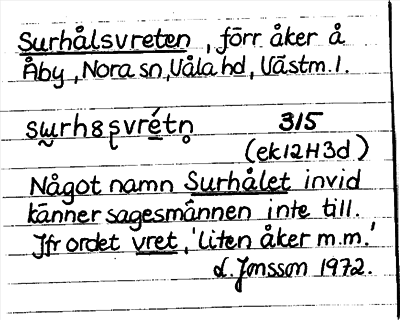 Surhålsvreten, förr åker å
Åby, Nora sn, Våla hd, Västm. l.
surh8ʂvrétn̥ 315
(ek 12H3d)
Något namn Surhålet invid
känner sagesmannen inte till.
Jfr ordet vret, 'liten åker m.m.'
L. Jonsson 1972.